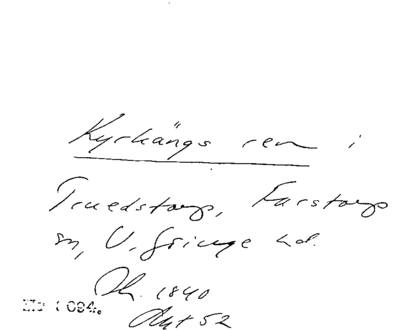 Kyrkängs ren i
Truedstorp, Farstorps
sn, V. Göinge hd.
1840
Akt 52